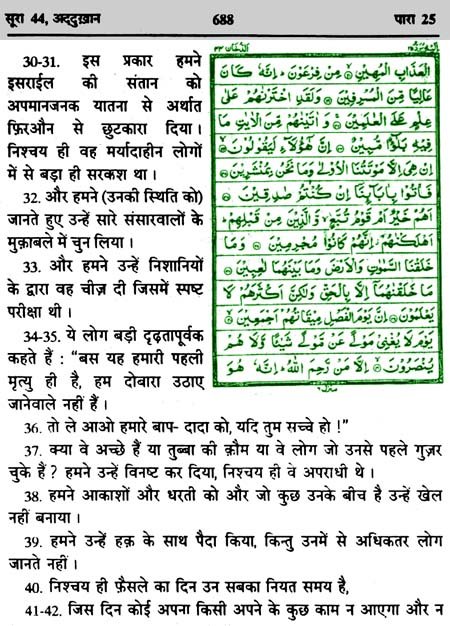 सूरा 44, अद्दुख़ान 688 पारा 25
الدخان ٤٤
30-31. इस प्रकार हमने
इसराईल की संतान को
अपमानजनक यातना से अर्थात
फ़िरऔन से छुटकारा दिया।
निश्चय ही वह मर्यादाहीन लोगों
में से बड़ा ही सरकश था।
32. और हमने (उनकी स्थिति को)
जानते हुए उन्हें सारे संसारवालों के
मुक़ाबले में चुन लिया।
33. और हमने उन्हें निशानियों
के द्वारा वह चीज़ दी जिसमें स्पष्ट
परीक्षा थी।
34-35. ये लोग बड़ी दृढ़तापूर्वक
कहते हैं : "बस यह हमारी पहली
मृत्यु ही है, हम दोबारा उठाए
जानेवाले नहीं हैं।
الْعَذَابِ الْمُهِيْنِ ۝ مِنْ فِرْعَوْنَ ؕ اِنَّهٗ كَانَ
عَالِيًا مِّنَ الْمُسْرِفِيْنَ ۝ وَلَقَدِ اخْتَرْنٰهُمْ عَلٰى
عِلْمٍ عَلَى الْعٰلَمِيْنَ ۝ وَاٰتَيْنٰهُمْ مِّنَ الْاٰيٰتِ مَا
فِيْهِ بَلٰٓؤٌا مُّبِيْنٌ ۝ اِنَّ هٰٓؤُلَآءِ لَيَقُوْلُوْنَ ۝
اِنْ هِىَ اِلَّا مَوْتَتُنَا الْاُوْلٰى وَمَا نَحْنُ بِمُنْشَرِيْنَ ۝
فَاْتُوْا بِاٰبَآئِنَآ اِنْ كُنْتُمْ صٰدِقِيْنَ ۝
اَهُمْ خَيْرٌ اَمْ قَوْمُ تُبَّعٍ ۙ وَّالَّذِيْنَ مِنْ قَبْلِهِمْ ؕ
اَهْلَكْنٰهُمْ ؗ اِنَّهُمْ كَانُوْا مُجْرِمِيْنَ ۝ وَمَا
خَلَقْنَا السَّمٰوٰتِ وَالْاَرْضَ وَمَا بَيْنَهُمَا لٰعِبِيْنَ ۝
مَا خَلَقْنٰهُمَآ اِلَّا بِالْحَقِّ وَلٰكِنَّ اَكْثَرَهُمْ لَا
يَعْلَمُوْنَ ۝ اِنَّ يَوْمَ الْفَصْلِ مِيْقَاتُهُمْ اَجْمَعِيْنَ ۝
يَوْمَ لَا يُغْنِيْ مَوْلًى عَنْ مَّوْلًى شَيْئًا وَّلَا هُمْ
يُنْصَرُوْنَ ۝ اِلَّا مَنْ رَّحِمَ اللّٰهُ ؕ اِنَّهٗ هُوَ
36. तो ले आओ हमारे बाप- दादा को, यदि तुम सच्चे हो !"
37. क्या वे अच्छे हैं या तुब्बा की क़ौम या वे लोग जो उनसे पहले गुज़र
चुके हैं? हमने उन्हें विनष्ट कर दिया, निश्चय ही वे अपराधी थे।
38. हमने आकाशों और धरती को और जो कुछ उनके बीच है उन्हें खेल
नहीं बनाया।
39. हमने उन्हें हक़ के साथ पैदा किया, किन्तु उनमें से अधिकतर लोग
जानते नहीं।
40. निश्चय ही फ़ैसले का दिन उन सबका नियत समय है,
41-42. जिस दिन कोई अपना किसी अपने के कुछ काम न आएगा और न